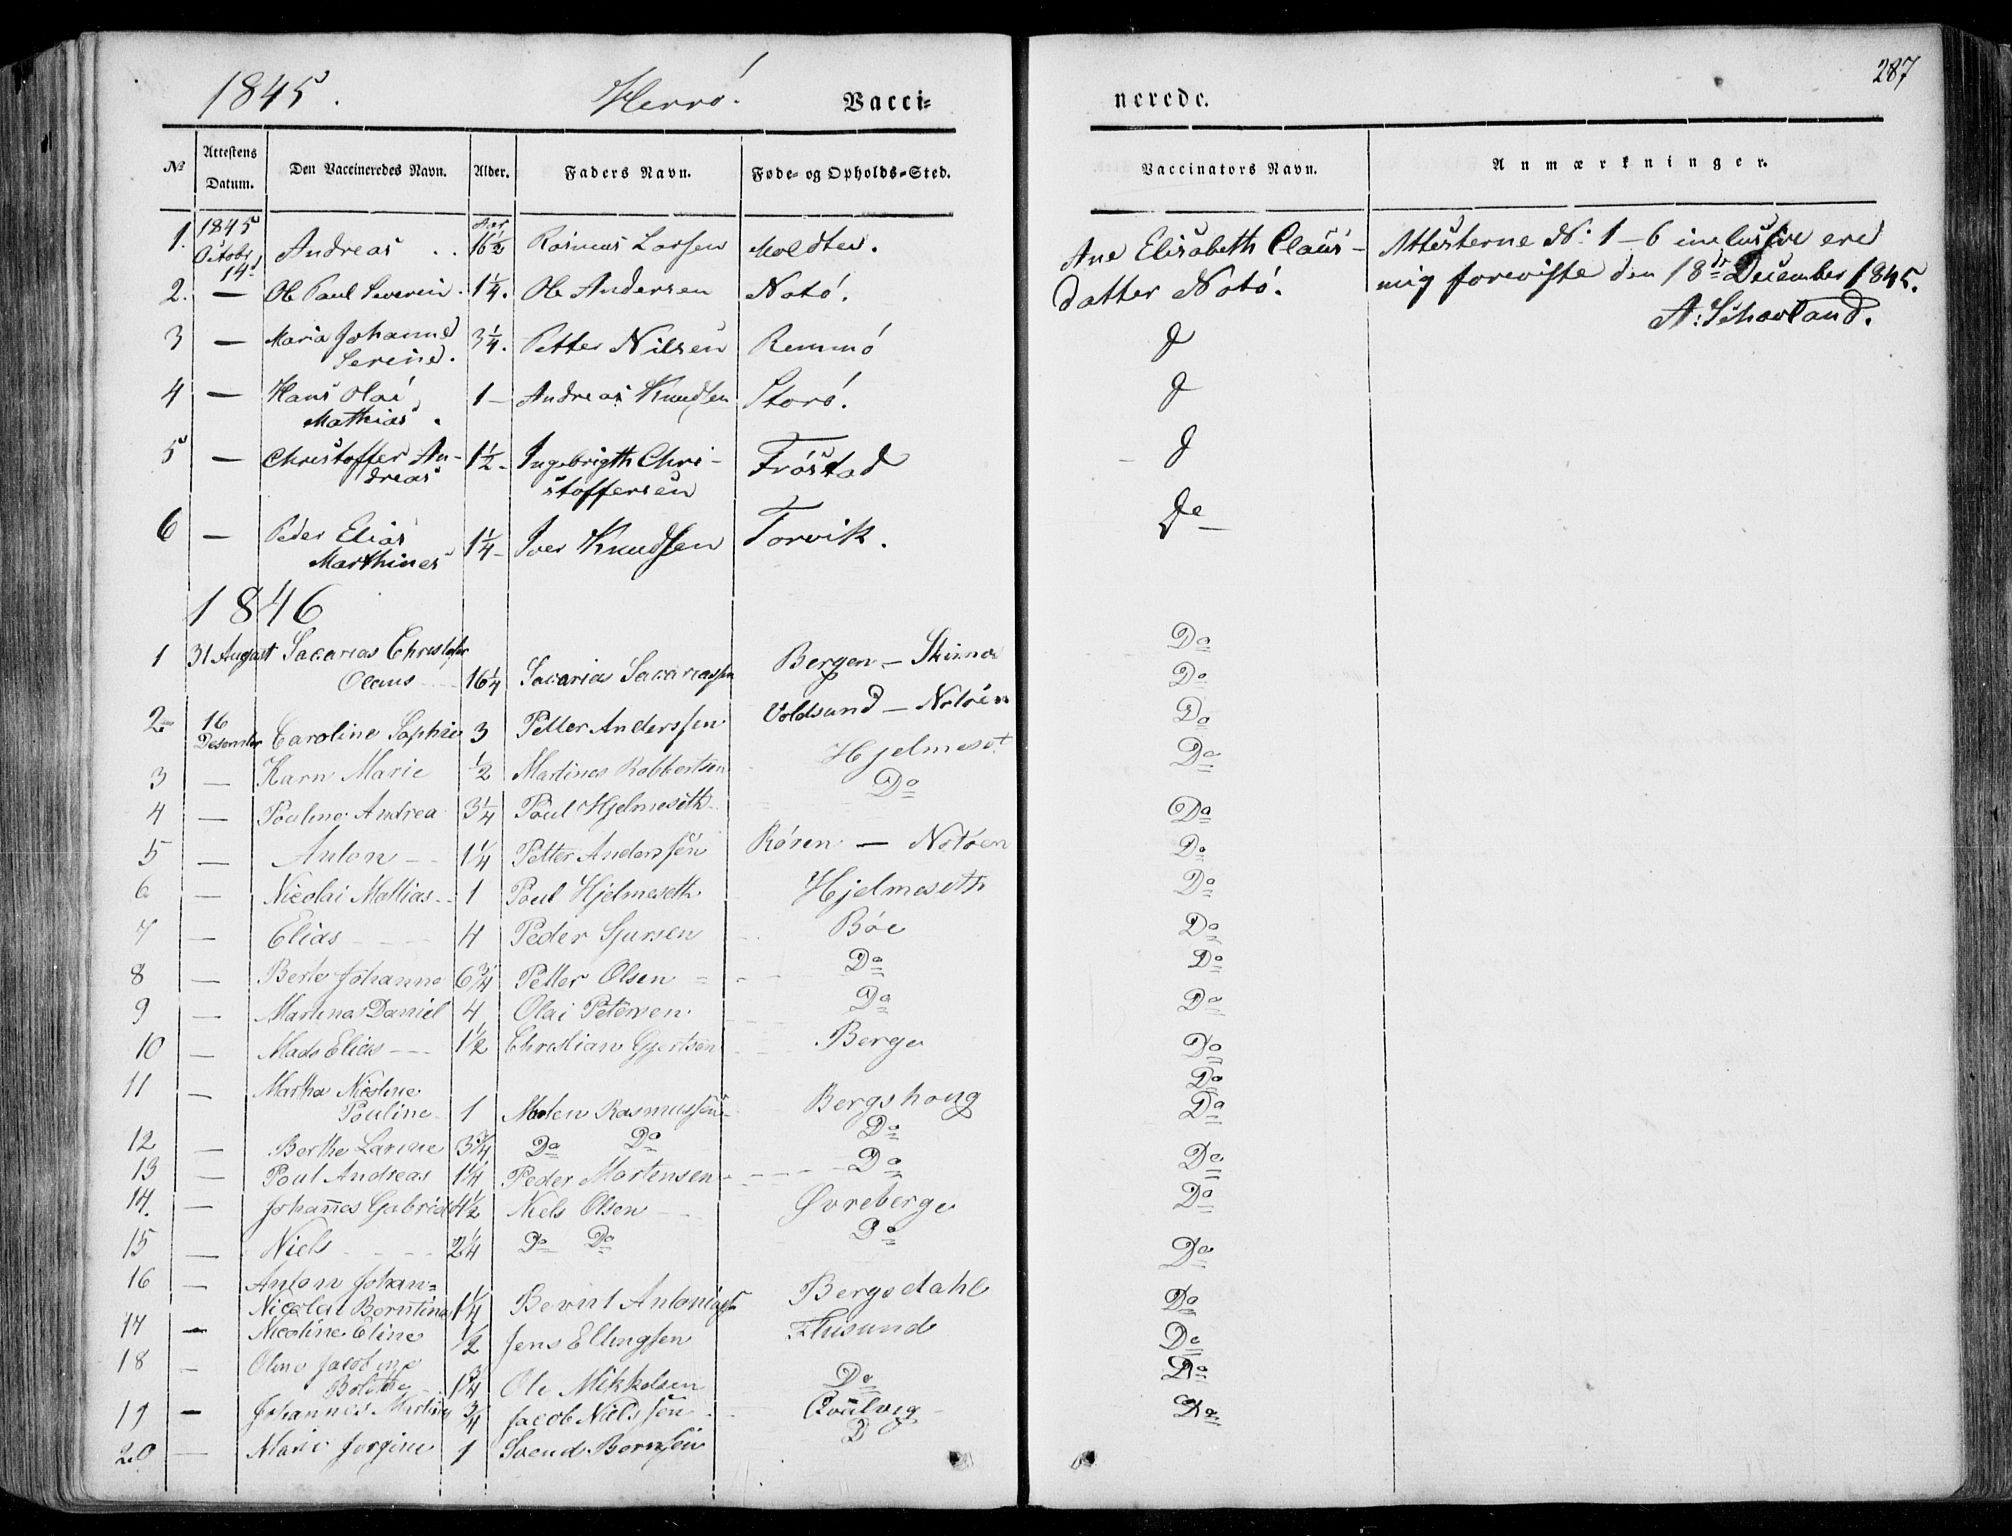 1845. Herrö. Vacci=
nerede. 287
No Attestens Datum. Den Vaccineredes Navn. Alder. Faders Navn. Føde- og Opholds-Sted. Vaccinators Navn. Anmærkninger.
1. 1845 Octobr 14de Andreas Aar 16½ Rasmus Larsen Moldtu. Ane Elisabeth Claus- Attesterne No: 1-6 inclusive ere
2. — Ole Paul Severin 1¼. Ole Andersen Notö. datter Notö. mig foreviste den 18de December 1845.
A: Schavland.
3 — Maria Johanne 3¼. Petter Nilsen Remmö
Serine.
4 — Hans Olai 1 — Andreas Knudsen Storö.
Mathias.
5 — Christoffer An- 1½ - Ingebrigth Chri- Fröstad
dreas stoffersen
6 — Peder Elias 1¼ - Iver Knudsen Torvik. Do
Marthines
1846
1 31 August Sacarias Christofer Bergen — Do
Olaus 16¼ Sacarias Sacariassen Do
2 16 Desember Caroline Sophie 3 Petter Anderssen Voldsund — Notöen Do
3 — Karn Marie ½ Martines Robbertsen Hjelmeset Do
4 — Pouline Andrea 3¼ Poul Hjelmeseth Do Do
5 — Anton 1¼ Petter Anderssen Rören — Notöen Do
6 — Nicolai Mathias 1 Poul Hjelmeseth Hjelmeseth Do
7 — Elias 4 Peder Sjursen Böe Do
8 — Berte Johanne 6¾ Petter Olsen Do Do
9 — Martinas Daniel 4 Olai Petersen Do Do
10 — Mads Elias 1½ Christian Gjertsen Berge Do
11 — Martha Nicoline Do
Pouline 1 Rasmussen Bergshoug Do
12 — Berthe Larine 3¾ Do Do Do
13 — Poul Andreas 1¼ Peder Mortensen Do Do
14. — Johannes Gabriel 4½ Niels Olsen Øvreberge Do
15 — Niels 2¼ Do Do Do Do
16 — Anton Johan=
Nicolai Berntinus 1¼ Bernt Bergsdahl Do
17 — Nicoline Eline ½ Jens Ellingsen Flusund Do
18 — Oline Jacobine
1¾ Ole Mikkelsen Do Do
19 — Johannes ¾ Jacob Nielssen Do
20 — Marie Jorgine 1 Svend Bernsen D